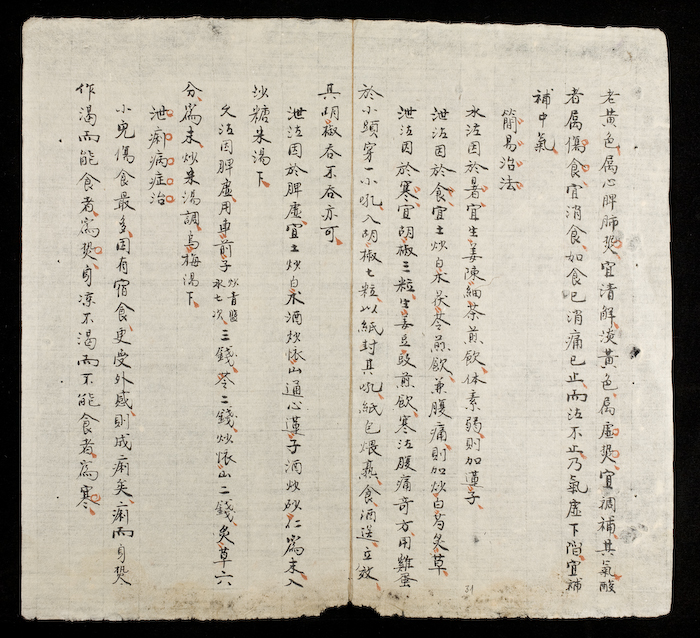 老黃色属心脾肺熱宜清解淡黃色属虛熱宜調補其氣酸
者属傷食宜消食如食已消痛已止而泻不止乃氣虛下陷宜補
補中氣
簡易治法
水泻因於暑宜生姜陳細茶煎飲体素弱則加蓮子
泄泻因於食宜土炒白术茯苓煎飲兼腹痛則加炒白芍炙草
泄泻因於寒宜胡椒三粒生姜豆豉煎飲寒泻腹痛奇方用雞蛋
於小頭穿一小吼入胡椒七粒以紙封其吼紙包煨熟食酒送立效
其胡椒吞不吞亦可
泄泻因於脾虛宜土炒白术酒炒怀山通心蓮子酒炒砂仁為末入
沙糖米湯下
久泻因脾虛用車前子炒青塩水七次三錢苓二錢炒怀山二錢炙草六
分為末炒米湯調烏梅湯下
泄痢病症治
小兒傷食最多因有宿食更受外感則成痢矣痢而身熱
作渴而能食者為熱身凉不渴而不能食者為寒
31